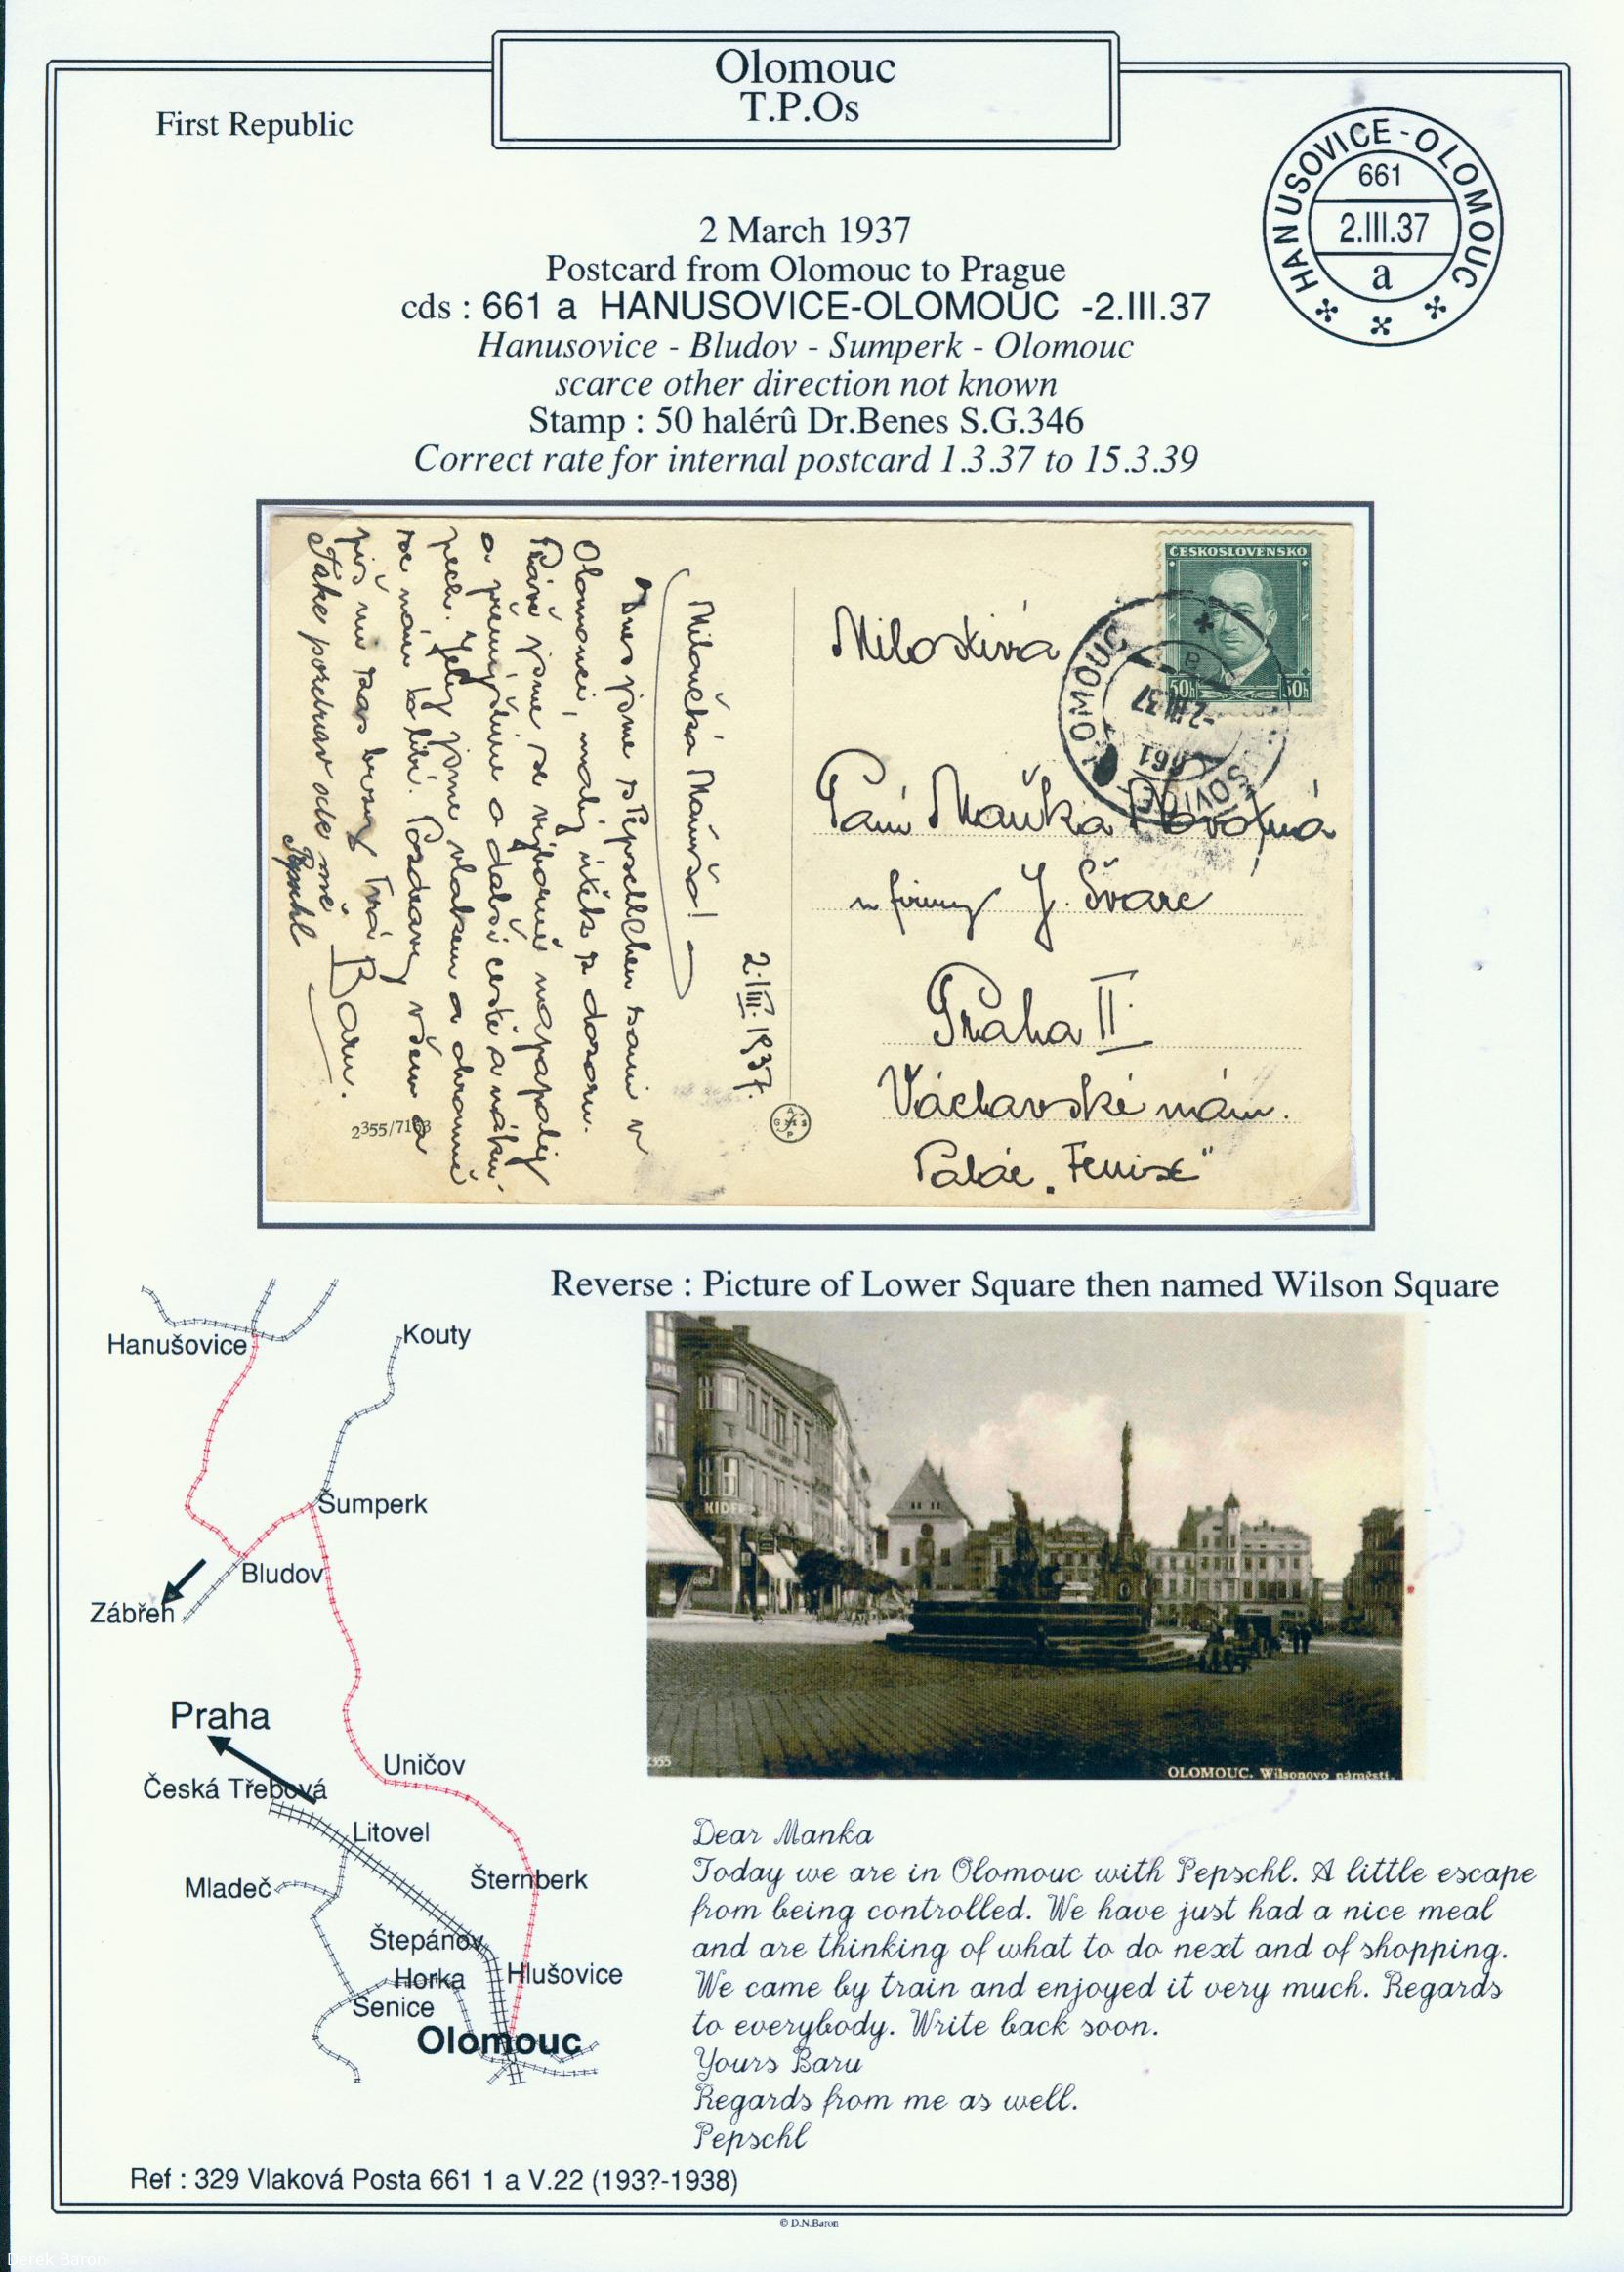 Olomouc
T.P.Os
First Republic
HANUSOVICE-OLOMOUC
661
2.III.37
a
2 March 1937
Postcard from Olomouc to Prague
cds : 661 a HANUSOVICE-OLOMOUC -2.III.37
Hanusovice - Bludov - Sumperk - Olomouc
scarce other direction not known
Stamp : 50 halérû Dr.Benes S.G.346
Correct rate for internal postcard 1.3.37 to 15.3.39
2.III.1937.
Miloučká Maňušo!
Dnes jsme s Pepschlem sami v
Olomouci, malý útěk z dozoru.
Právě jsme se výborně napapaly
a přemýšlíme o další cestě a náku-
pech. Jely jsme vlakem a ohromně
se nám to líbí. Pozdravuj všem a
piš mi zas brzy Tvá Baru.
Také pozdrav ode mě
Pepschl
2355/7163
ČESKOSLOVENSKO
50h 50h
OLOMOUC
661
-2.III.37
a
Milostivá
Paní Maňka Novotná
u firmy J. Švarc
Praha II
Václavské nám.
Palác „Fenix"
Reverse : Picture of Lower Square then named Wilson Square
KIDER
2355
OLOMOUC. Wilsonovo náměstí.
Hanušovice
Kouty
Šumperk
Bludov
Zábřeh
Praha
Uničov
Česká Třebová
Litovel
Mladeč
Šternberk
Štepánov
Horka
Hlušovice
Senice
Olomouc
Dear Manka
Today we are in Olomouc with Pepschl. A little escape
from being controlled. We have just had a nice meal
and are thinking of what to do next and of shopping.
We came by train and enjoyed it very much. Regards
to everybody. Write back soon.
Yours Baru
Regards from me as well.
Pepschl
Ref : 329 Vlaková Posta 661 1 a V.22 (193?-1938)
© D.N.Baron
Derek Baron